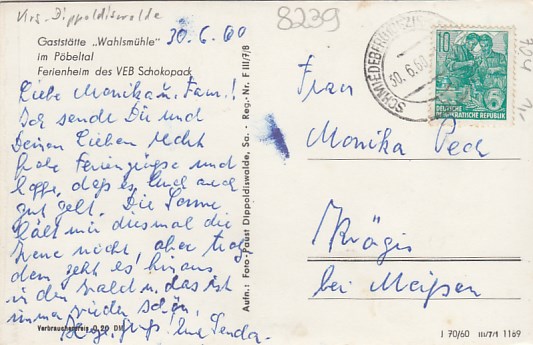 Krs. Dippoldiswalde
8239
Gaststätte „Wahlsmühle"
im Pöbeltal
Ferienheim des VEB Schokopack
30.6.60
Liebe Monika u. Fam.!
Ich sende Dir und
Deinen Lieben recht
frohe Feriengrüße und
hoffe, daß es Euch auch
gut geht. Die Sonne
hält mir diesmal die
nicht, aber trotz
dem geht es hinaus
in den Wald u. das ist
immer wieder schön.
Verbraucherpreis 0,20 DM
Aufn.: Foto-Paust Dippoldiswalde, Sa. - Reg.-Nr. F III/7/8
SCHMIEDEBERG
30.6.60
10
DEUTSCHE
DEMOKRATISCHE REPUBLIK
Frau
Monika Pech
Krögis
bei Meißen
I 70/60 III/7/1 1169